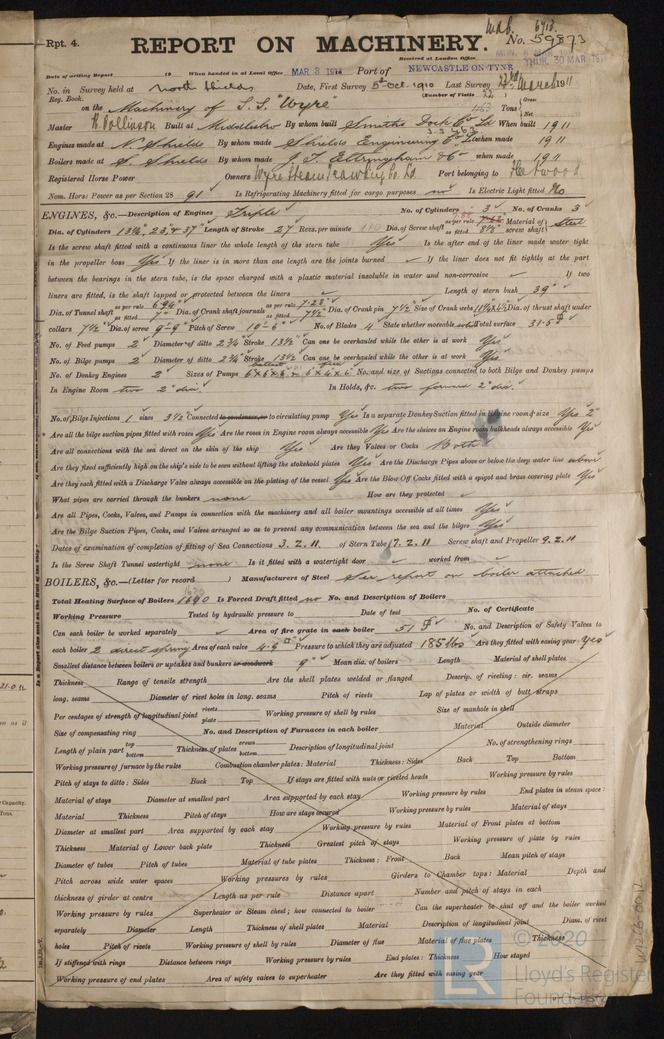 Rpt. 4.
REPORT ON MACHINERY. No. 59873
Received at London Office THUR. 30 MAR 1911
Date of writing Report 19 When handed in at Local Office MAR 8 1911 Port of NEWCASTLE-ON-TYNE
No. in Survey held at North Shields Date, First Survey 5th Oct. 1910 Last Survey 22nd March 1911
Reg. Book. (Number of Visits 22)
on the Machinery of S.S. "Wyre" Tons Gross Net
Master R. Rollinson Built at Middlesbro By whom built Smiths Dock Co Ld When built 1911
Engines made at N. Shields By whom made Shields Engineering Co Ld when made 1911
Boilers made at S. Shields By whom made J. T. Eltringham & Co when made 1911
Registered Horse Power Owners Wyre Steam Trawling Co. Ld Port belonging to Fleetwood
Nom. Horse Power as per Section 28 91 Is Refrigerating Machinery fitted for cargo purposes no Is Electric Light fitted No
ENGINES, &c.—Description of Engines Triple No. of Cylinders 3 No. of Cranks 3
Dia. of Cylinders 13¼", 23, & 37" Length of Stroke 27 Revs. per minute 110 Dia. of Screw shaft as per rule as fitted 8⅛" Material of screw shaft Steel
Is the screw shaft fitted with a continuous liner the whole length of the stern tube Yes Is the after end of the liner made water tight
in the propeller boss Yes If the liner is in more than one length are the joints burned If the liner does not fit tightly at the part
between the bearings in the stern tube, is the space charged with a plastic material insoluble in water and non-corrosive If two
liners are fitted, is the shaft lapped or protected between the liners Length of stern bush 39"
Dia. of Tunnel shaft as per rule 6.94" as fitted 7" Dia. of Crank shaft journals as per rule 7.28" as fitted 7½" Dia. of Crank pin 7½" Size of Crank webs Dia. of thrust shaft under
collars 7½" Dia. of screw 9-9" Pitch of Screw 10-6" No. of Blades 4 State whether moveable solid Total surface 31.5
No. of Feed pumps 2 Diameter of ditto 2¾ Stroke 13½ Can one be overhauled while the other is at work Yes
No. of Bilge pumps 2 Diameter of ditto 2¾ Stroke 13½ Can one be overhauled while the other is at work Yes
No. of Donkey Engines 2 Sizes of Pumps No. and size of Suctions connected to both Bilge and Donkey pumps
In Engine Room two 2" dia. In Holds, &c. two forward 2" dia.
No. of Bilge Injections 1 sizes 3½" Connected to condenser, or to circulating pump Yes Is a separate Donkey Suction fitted in Engine room & size Yes 2"
Are all the bilge suction pipes fitted with roses Yes Are the roses in Engine room always accessible Yes Are the sluices on Engine room bulkheads always accessible Yes
Are all connections with the sea direct on the skin of the ship Yes Are they Valves or Cocks Both
Are they fixed sufficiently high on the ship's side to be seen without lifting the stokehold plates Yes Are the Discharge Pipes above or below the deep water line above
Are they each fitted with a Discharge Valve always accessible on the plating of the vessel Yes Are the Blow Off Cocks fitted with a spigot and brass covering plate Yes
What pipes are carried through the bunkers none How are they protected
Are all Pipes, Cocks, Valves, and Pumps in connection with the machinery and all boiler mountings accessible at all times Yes
Are the Bilge Suction Pipes, Cocks, and Valves arranged so as to prevent any communication between the sea and the bilges Yes
Dates of examination of completion of fitting of Sea Connections 3.2.11 of Stern Tube 7.2.11 Screw shaft and Propeller 9.2.11
Is the Screw Shaft Tunnel watertight none Is it fitted with a watertight door worked from
BOILERS, &c.—(Letter for record ) Manufacturers of Steel See report on boiler attached
Total Heating Surface of Boilers 1690 Is Forced Draft fitted no No. and Description of Boilers
Working Pressure Tested by hydraulic pressure to Date of test No. of Certificate
Can each boiler be worked separately Area of fire grate in each boiler 51 No. and Description of Safety Valves to
each boiler 2 direct spring Area of each valve 4.9 Pressure to which they are adjusted 185 lbs Are they fitted with easing gear Yes
Smallest distance between boilers or uptakes and bunkers or woodwork 9" Mean dia. of boilers Length Material of shell plates
Thickness Range of tensile strength Are the shell plates welded or flanged Descrip. of riveting: cir. seams
long. seams Diameter of rivet holes in long. seams Pitch of rivets Lap of plates or width of butt straps
Per centages of strength of longitudinal joint rivets plate Working pressure of shell by rules Size of manhole in shell
Size of compensating ring No. and Description of Furnaces in each boiler Material Outside diameter
Length of plain part top bottom Thickness of plates crown bottom Description of longitudinal joint No. of strengthening rings
Working pressure of furnace by the rules Combustion chamber plates: Material Thickness: Sides Back Top Bottom
Pitch of stays to ditto: Sides Back Top If stays are fitted with nuts or riveted heads Working pressure by rules
Material of stays Diameter at smallest part Area supported by each stay Working pressure by rules End plates in steam space:
Material Thickness Pitch of stays How are stays secured Working pressure by rules Material of stays
Diameter at smallest part Area supported by each stay Working pressure by rules Material of Front plates at bottom
Thickness Material of Lower back plate Thickness Greatest pitch of stays Working pressure of plate by rules
Diameter of tubes Pitch of tubes Material of tube plates Thickness: Front Back Mean pitch of stays
Pitch across wide water spaces Working pressures by rules Girders to Chamber tops: Material Depth and
thickness of girder at centre Length as per rule Distance apart Number and pitch of stays in each
Working pressure by rules Superheater or Steam chest; how connected to boiler Can the superheater be shut off and the boiler worked
separately Diameter Length Thickness of shell plates Material Description of longitudinal joint Diam. of rivet
holes Pitch of rivets Working pressure of shell by rules Diameter of flue Material of flue plates Thickness
If stiffened with rings Distance between rings Working pressure by rules End plates: Thickness How stayed
Working pressure of end plates Area of safety valves to superheater Are they fitted with easing gear
© 2020
Lloyd's Register
Foundation